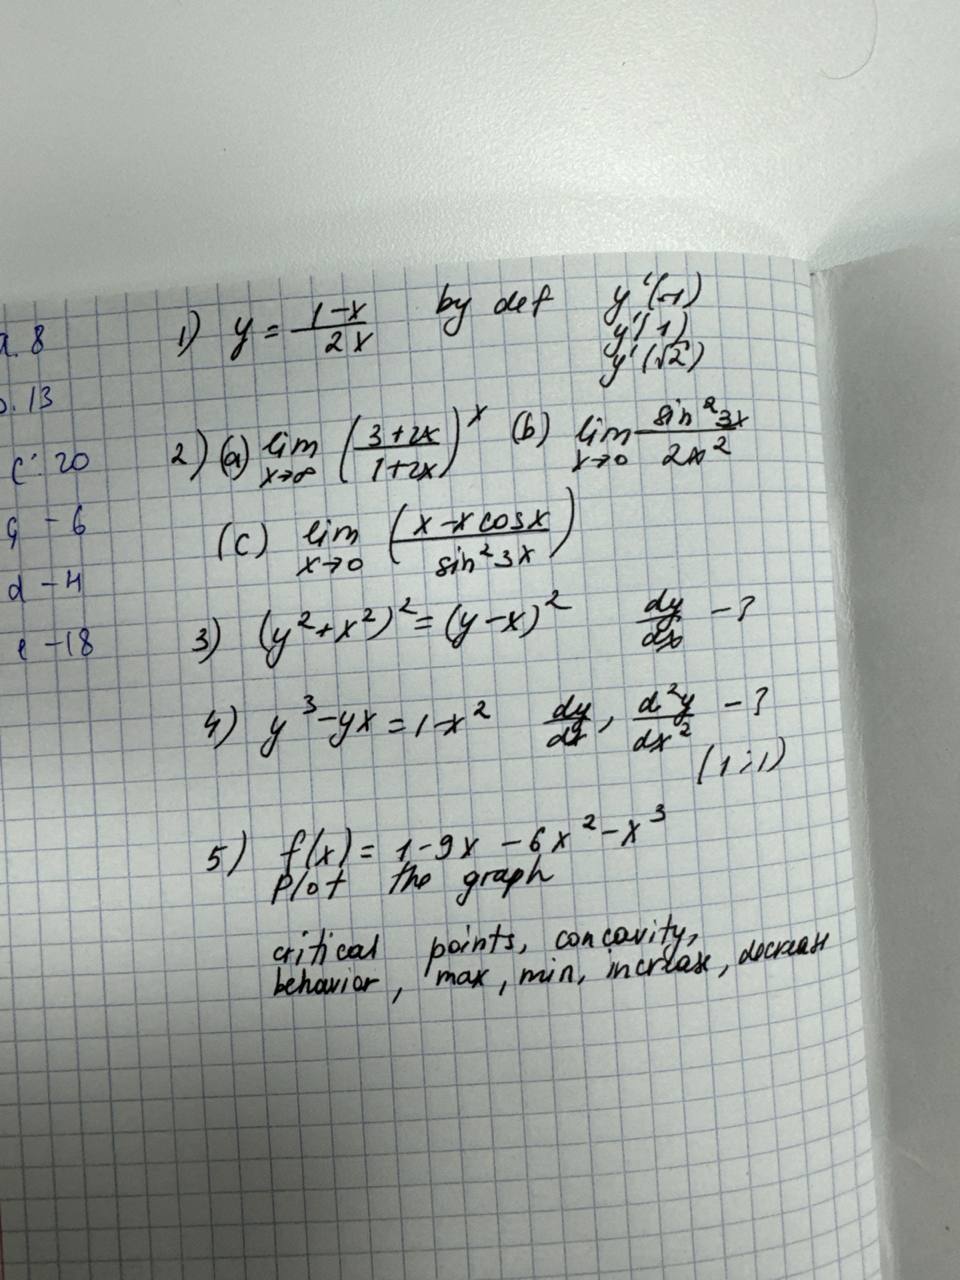 a. 8
b. 13
c: 20
ç - 6
d - 4
e - 18
1) y = (1-x)/(2x) by def y'(-1)
y'(1)
y'(√2)
2) (a) lim x→∞ ((3+2x)/(1+2x))^x (b) lim x→0 (sin²3x)/(2x²)
(c) lim x→0 ((x-x cosx)/(sin²3x))
3) (y²+x²)² = (y-x)² dy/dx - ?
4) y³-yx = 1-x² dy/dx, d²y/dx² - ?
(1;1)
5) f(x) = 1-9x-6x²-x³
Plot the graph
critical points, concavity,
behavior, max, min, increase, decrease